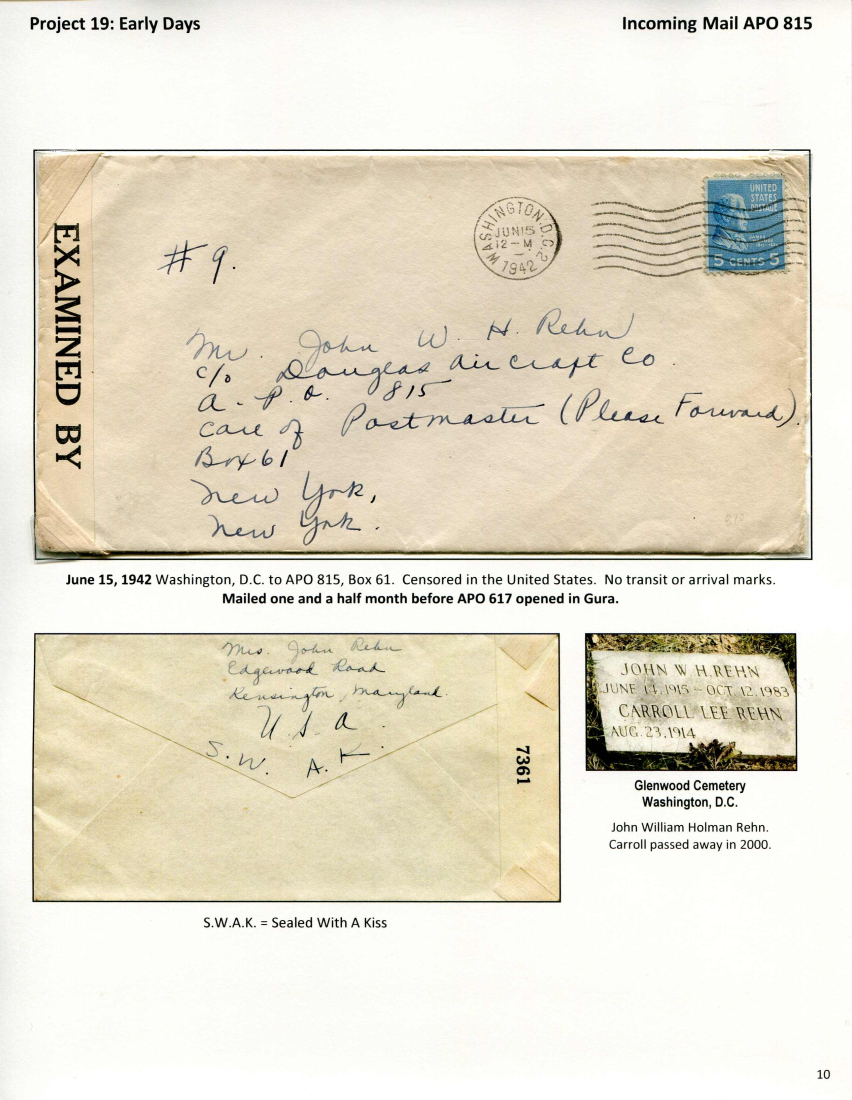 Project 19: Early Days
Incoming Mail APO 815
EXAMINED BY
# 9.
WASHINGTON, D.C. 2
JUN 15
12 - M
1942
UNITED
STATES
POSTAGE
5 CENTS 5
Mr. John W. H. Rehn
c/o Douglas Aircraft Co.
A. P. O. 815
Care of Postmaster (Please Forward).
Box 61
New York,
New York.
June 15, 1942 Washington, D.C. to APO 815, Box 61. Censored in the United States. No transit or arrival marks.
Mailed one and a half month before APO 617 opened in Gura.
Mrs. John Rehn
Edgewood Road
Kensington, Maryland.
U. S. A.
S. W. A. K.
7361
JOHN W H. REHN
JUNE 14, 1915 - OCT. 12, 1983
CARROLL LEE REHN
AUG. 23, 1914
Glenwood Cemetery
Washington, D.C.
John William Holman Rehn.
Carroll passed away in 2000.
S.W.A.K. = Sealed With A Kiss
10